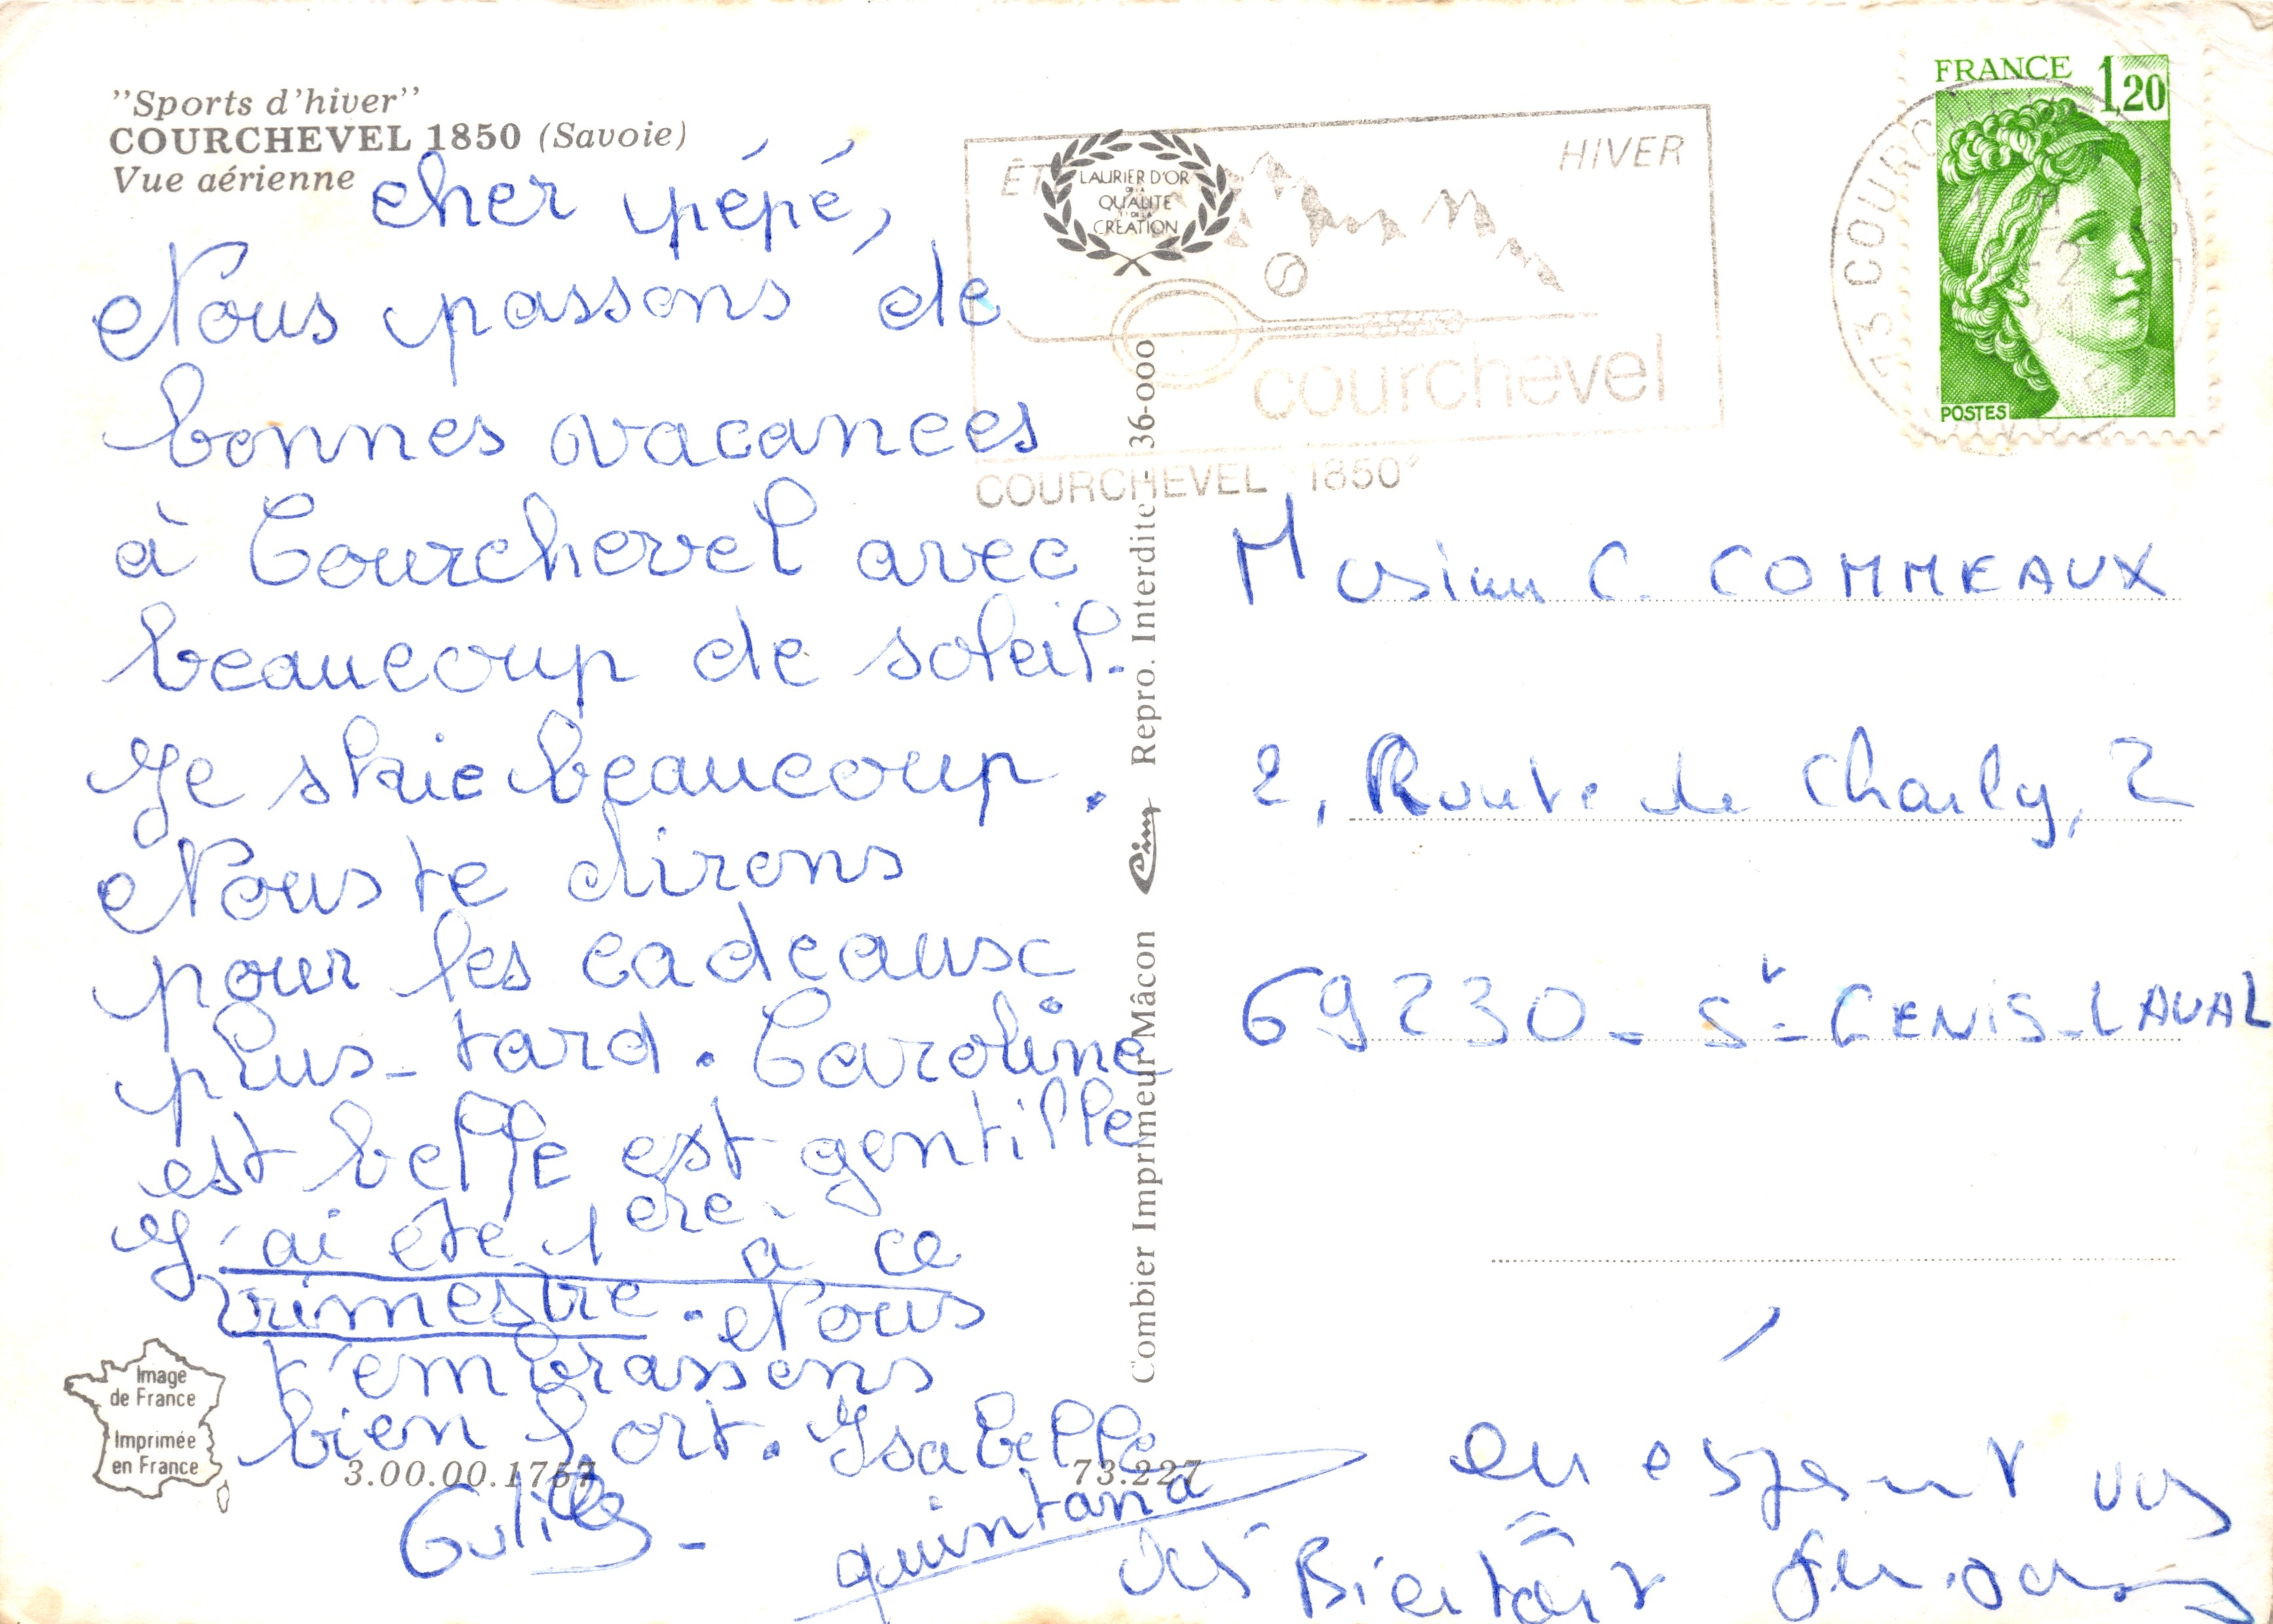 "Sports d'hiver"
COURCHEVEL 1850 (Savoie)
Vue aérienne
cher pépé,
Nous passons de
bonnes vacances
à Courchevel avec
beaucoup de soleil.
Je skie beaucoup.
Nous te dirons
pour les cadeaux
plus-tard. Caroline
est belle est gentille
J'ai été 1ère à ce
trimestre. Nous
t'embrassons
bien fort. Isabelle
quintana
Image
de France
Imprimée
en France
3.00.00.1757
73.227
Combier Imprimeur Mâcon Cim Repro. Interdite - 36-000
ÉT HIVER
LAURIER D'OR
DE LA
QUALITÉ
DE LA
CRÉATION
courchevel
COURCHEVEL 1850
73 COURCHEVEL
FRANCE 1,20
POSTES
C. COMMEAUX
2, Route de Charly, 2
69230 - St - GENIS-LAVAL
en espérant vous
Bientôt